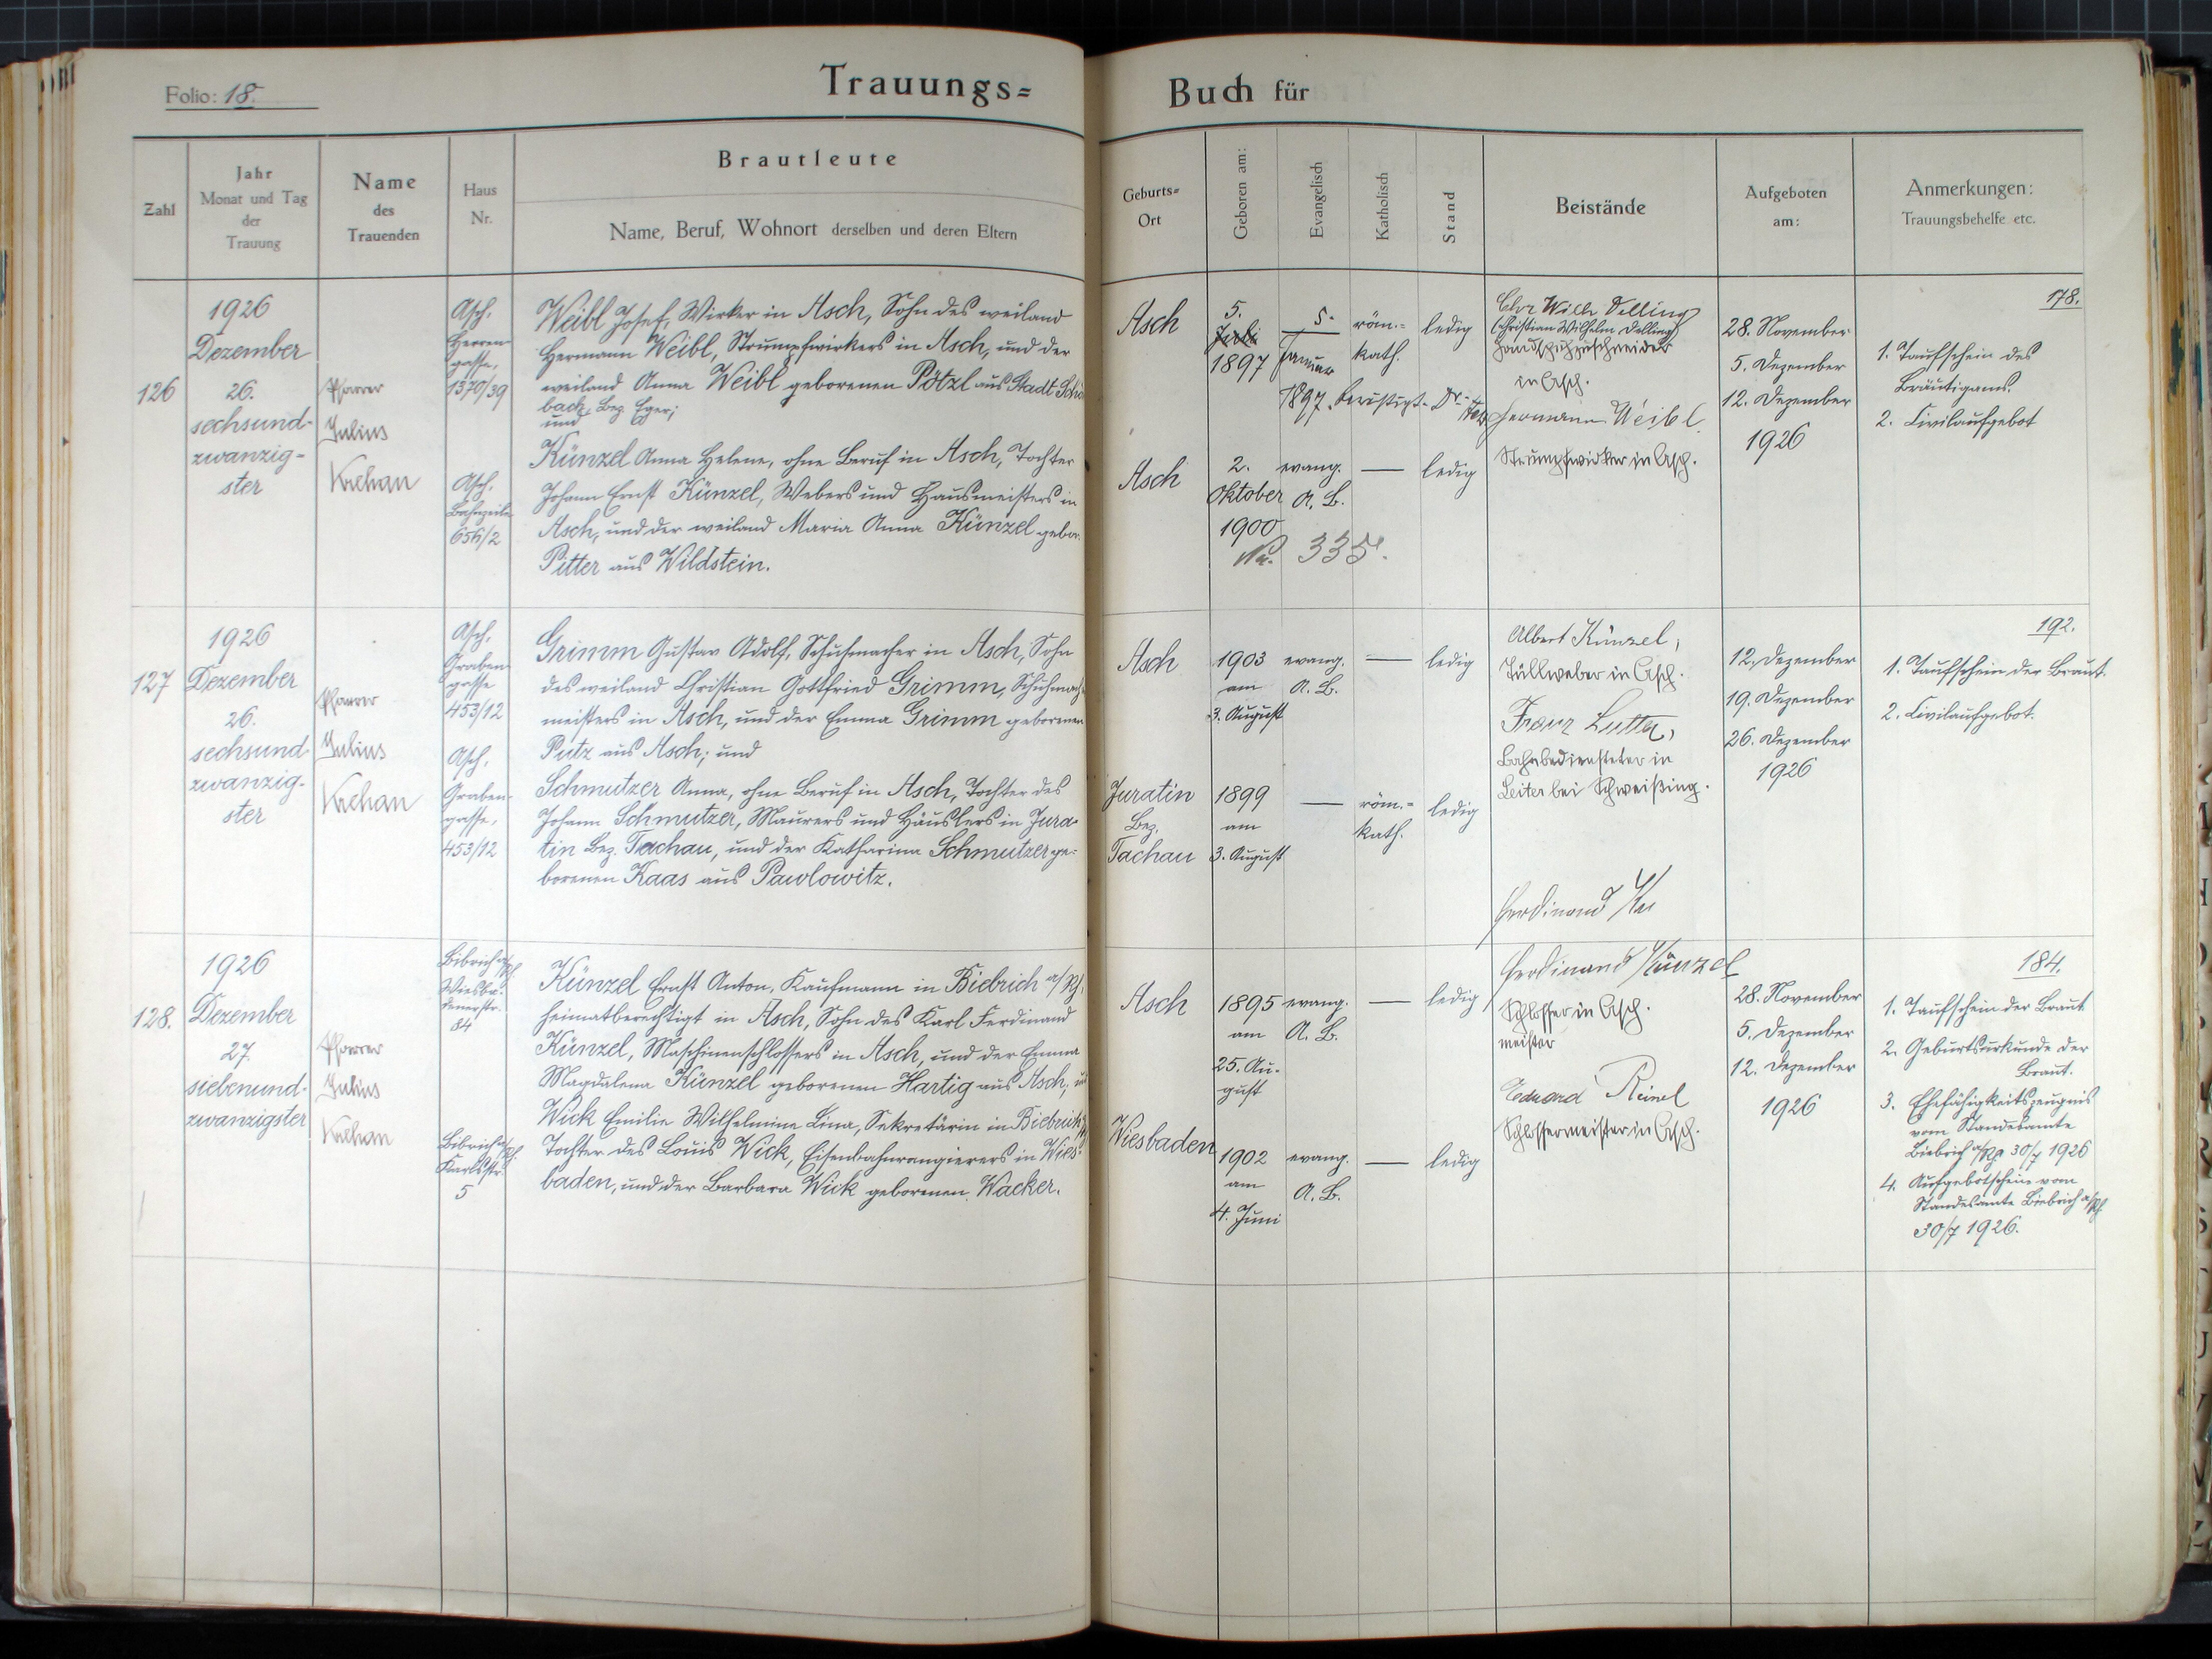 Folio: 18.
Trauungs=
Buch für
Zahl
Jahr
Monat und Tag
der
Trauung
Name
des
Trauenden
Haus
Nr.
Brautleute
Name, Beruf, Wohnort derselben und deren Eltern
Geburts=
Ort
Geboren am:
Evangelisch
Katholisch
Stand
Beistände
Aufgeboten
am:
Anmerkungen:
Trauungsbehelfe etc.
126
1926
Dezember
26.
sechsund-
zwanzig-
ster
Pfarrer
Julius
Krehan
Asch,
Herren-
gasse,
1370/39
Weibl Josef, Wirker in Asch, Sohn des weiland
Hermann Weibl, Strumpfwirkers in Asch, und der
weiland Anna Weibl geborenen Pötzl aus Stadt Schön
bach, Bez. Eger;
und
Asch,
Bahnzeile
656/2
Künzel Anna Helene, ohne Beruf in Asch, Tochter
Johann Ernst Künzel, Webers und Hausmeisters in
Asch, und der weiland Maria Anna Künzel gebor.
Pitter aus Wildstein.
Asch
5.
Juli
1897
5.
Januar
1897. berichtigt.
röm.-
kath.
ledig
Chr Wilh Delling
(Christian Wilhelm Delling)
Handschuhzuschneider
in Asch.
Hermann Weibl.
Strumpfwirker in Asch.
28. November
5. Dezember
12. Dezember
1926
178.
1. Taufschein des
Bräutigams.
2. Civilaufgebot
Asch
2.
Oktober
1900
evang.
A. B.
—
ledig
No. 335.
127
1926
Dezember
26.
sechsund-
zwanzig-
ster
Pfarrer
Julius
Krehan
Asch,
Graben-
gasse
453/12
Grimm Gustav Adolf, Schuhmacher in Asch, Sohn
des weiland Christian Gottfried Grimm, Schuhmach
meisters in Asch, und der Emma Grimm geborenen
Putz aus Asch; und
Asch,
Graben-
gasse,
453/12
Schmutzer Anna, ohne Beruf in Asch, Tochter des
Johann Schmutzer, Maurers und Häuslers in Jura-
tin Bez. Tachau, und der Katharina Schmutzer ge-
borenen Kaas aus Pawlowitz.
Asch
1903
am
3. August
evang.
A. B.
—
ledig
Albert Künzel,
Tüllweber in Asch.
Franz Lutta,
Bahnbediensteter in
Leiter bei Schweißing.
12. Dezember
19. Dezember
26. Dezember
1926
192.
1. Taufschein der Braut.
2. Civilaufgebot.
Juratin
Bez.
Tachau
1899
am
3. August
—
röm.-
kath.
ledig
Ferdinand
128.
1926
Dezember
27.
siebenund-
zwanzigster
Pfarrer
Julius
Krehan
Bibrich a/Rh.
Wiesba-
denerstr.
84
Künzel Ernst Anton, Kaufmann in Biebrich a/Rh,
heimatberechtigt in Asch, Sohn des Karl Ferdinand
Künzel, Maschinenschlossers in Asch, und der Emma
Magdalena Künzel geborenen Hartig aus Asch; und
Bibrich a/Rh.
Karlsstr.
5
Wick Emilie Wilhelmine Lina, Sekretärin in Biebrich
Tochter des Louis Wick, Eisenbahnrangierers in Wies-
baden, und der Barbara Wick geborenen Wacker.
Asch
1895
am
25. Au-
gust
evang.
A. B.
—
ledig
Ferdinand Künzel
Schlosser in Asch.
meister
Eduard Reinel
Schlossermeister in Asch.
28. November
5. Dezember
12. Dezember
1926
184.
1. Taufschein der Braut
2. Geburtsurkunde der
Braut.
3. Ehefähigkeitszeugnis
vom Standesamte
Biebrich a/Rh 30/7 1926
4. Aufgebotschein vom
Standesamte Biebrich a/Rh.
30/7 1926.
Wiesbaden
1902
am
4. Juni
evang.
A. B.
—
ledig